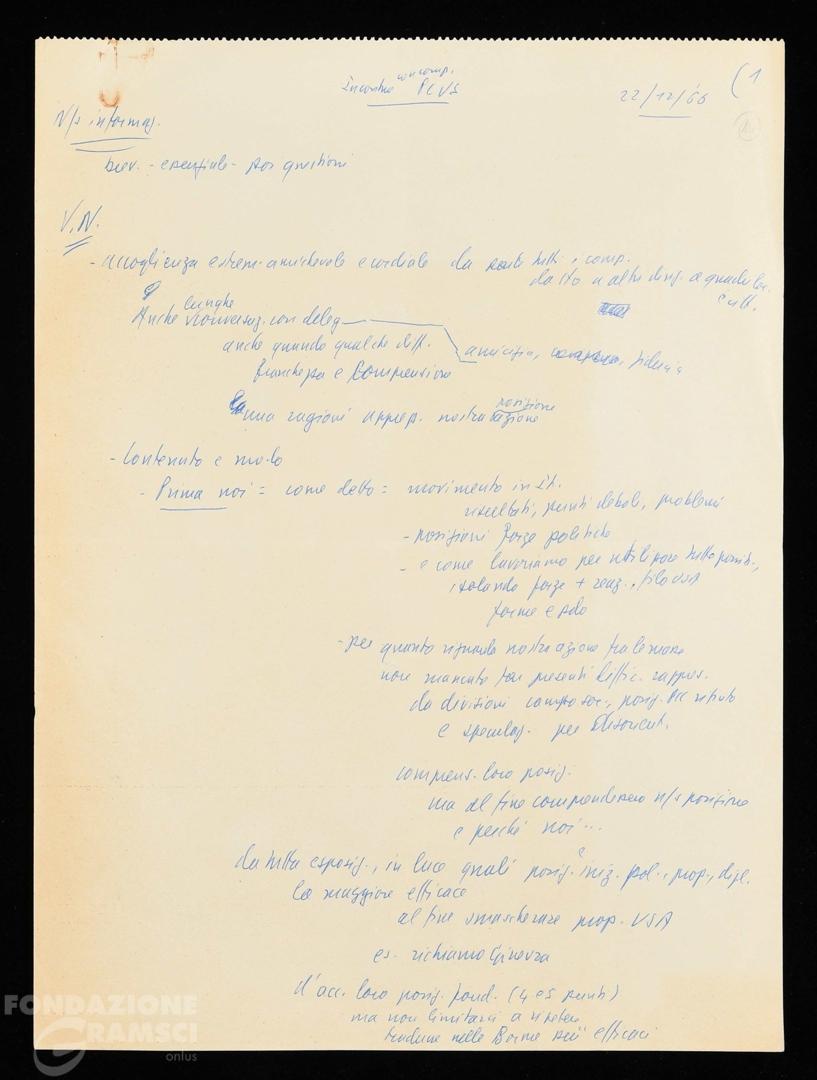 (1
Incontro con comp. PCUS
22/12/66
N/s informaz.
brev. - essenziale - poi questioni
V.N.
- accoglienza estrem. amichevole e cordiale da parte tutti i comp.
da Ho a altri dirig. a quadri
Anche lunghe conversaz. con deleg
anche quando qualche diff. amicizia, fiducia
franchezza e comprensione
una ragioni apprez. nostra posizione azione
- Contenuto e modo
- Prima noi = come detto = movimento in It.
risultati, punti deboli, problemi
- posizioni forze politiche
- e come lavoriamo per utilizzare tutte possib.,
isolando forze + reaz., filo USA
forme e
- per quanto riguarda nostra azione tra le masse
non mancato far presenti diffic. rappres.
da divisioni campo soc., posiz. PCC rifiuto
e speculaz. per disorient.
comprens. loro posiz.
ma al fine comprendessero n/s posizione
e perché noi ...
da tutta esposiz., in luce quali posiz. e iniz. pol., prop., dipl.
la maggiore efficace
al fine smascherare prop. USA
es. richiamo Ginevra
d'acc. loro posiz. fond. (4 e 5 punti)
ma non limitarsi a ripetere
tradurre nelle forme più efficaci
FONDAZIONE
GRAMSCI
onlus